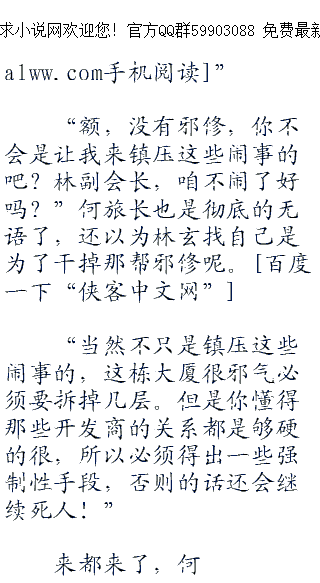 求小说网欢迎您！官方QQ群59903088 免费最新
alww.com手机阅读]”
“额，没有邪修，你不
会是让我来镇压这些闹事的
吧？林副会长，咱不闹了好
吗？”何旅长也是彻底的无
语了，还以为林玄找自己是
为了干掉那帮邪修呢。[百度
一下“侠客中文网”]
“当然不只是镇压这些
闹事的，这栋大厦很邪气必
须要拆掉几层。但是你懂得
那些开发商的关系都是够硬
的很，所以必须得出一些强
制性手段，否则的话还会继
续死人！”
来都来了，何